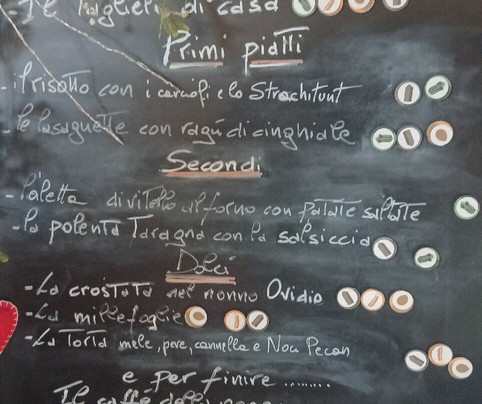 - Il taglieri di casa
Primi piatti
- il risotto con i carciofi e lo Strachitunt
- le lasagnette con ragù di cinghiale
Secondi
- Paletta di vitello al forno con patate saltate
- la polenta Taragna con la salsiccia
Dolci
- La crostata del nonno Ovidio
- La millefoglie
- La Torta mele, pere, cannella e Noci Pecan
e per finire........
Il caffé